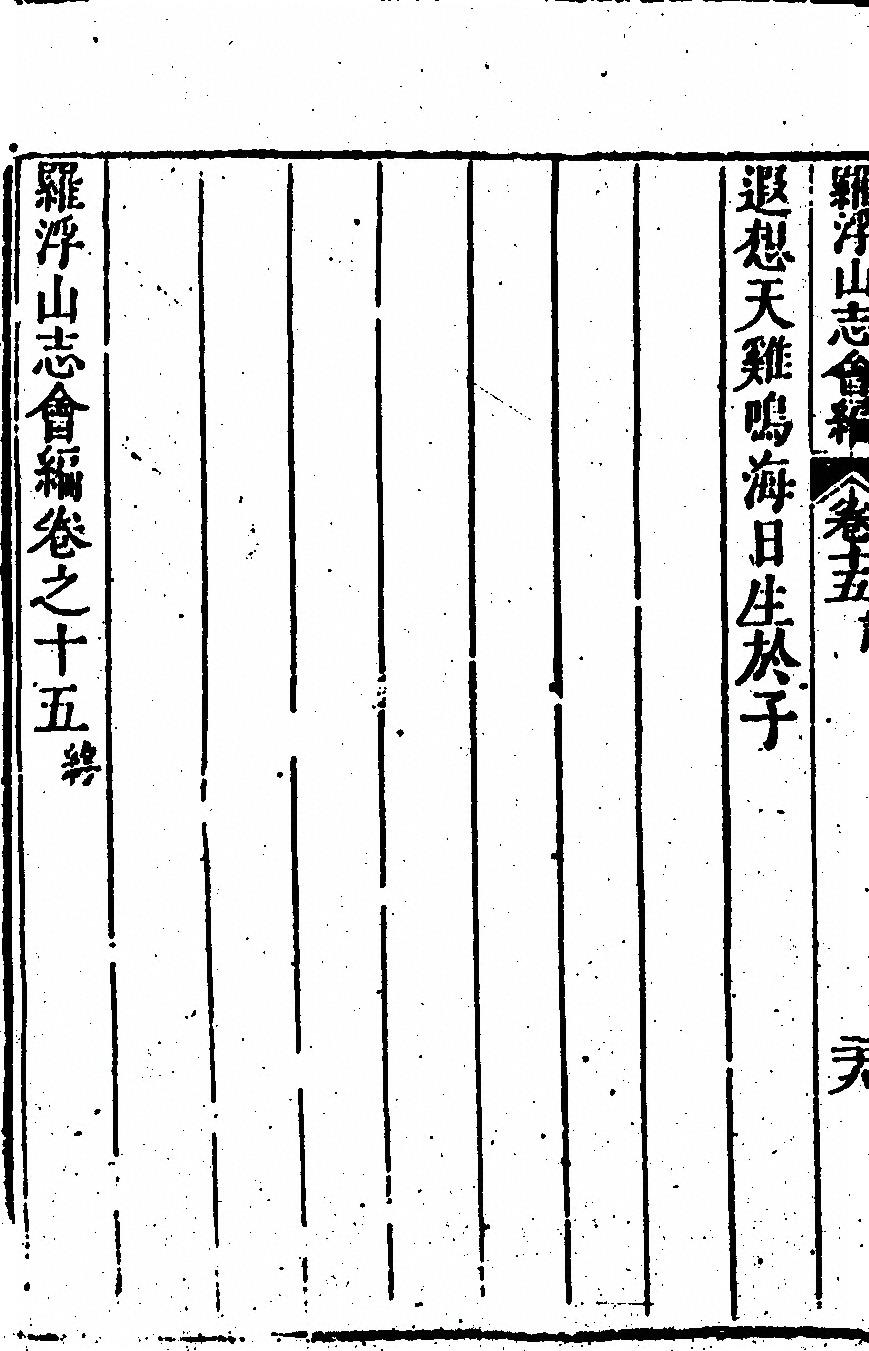 羅浮山志會編
卷十五
遐想天雞鳴海日生於子
羅浮山志會編卷之十五終